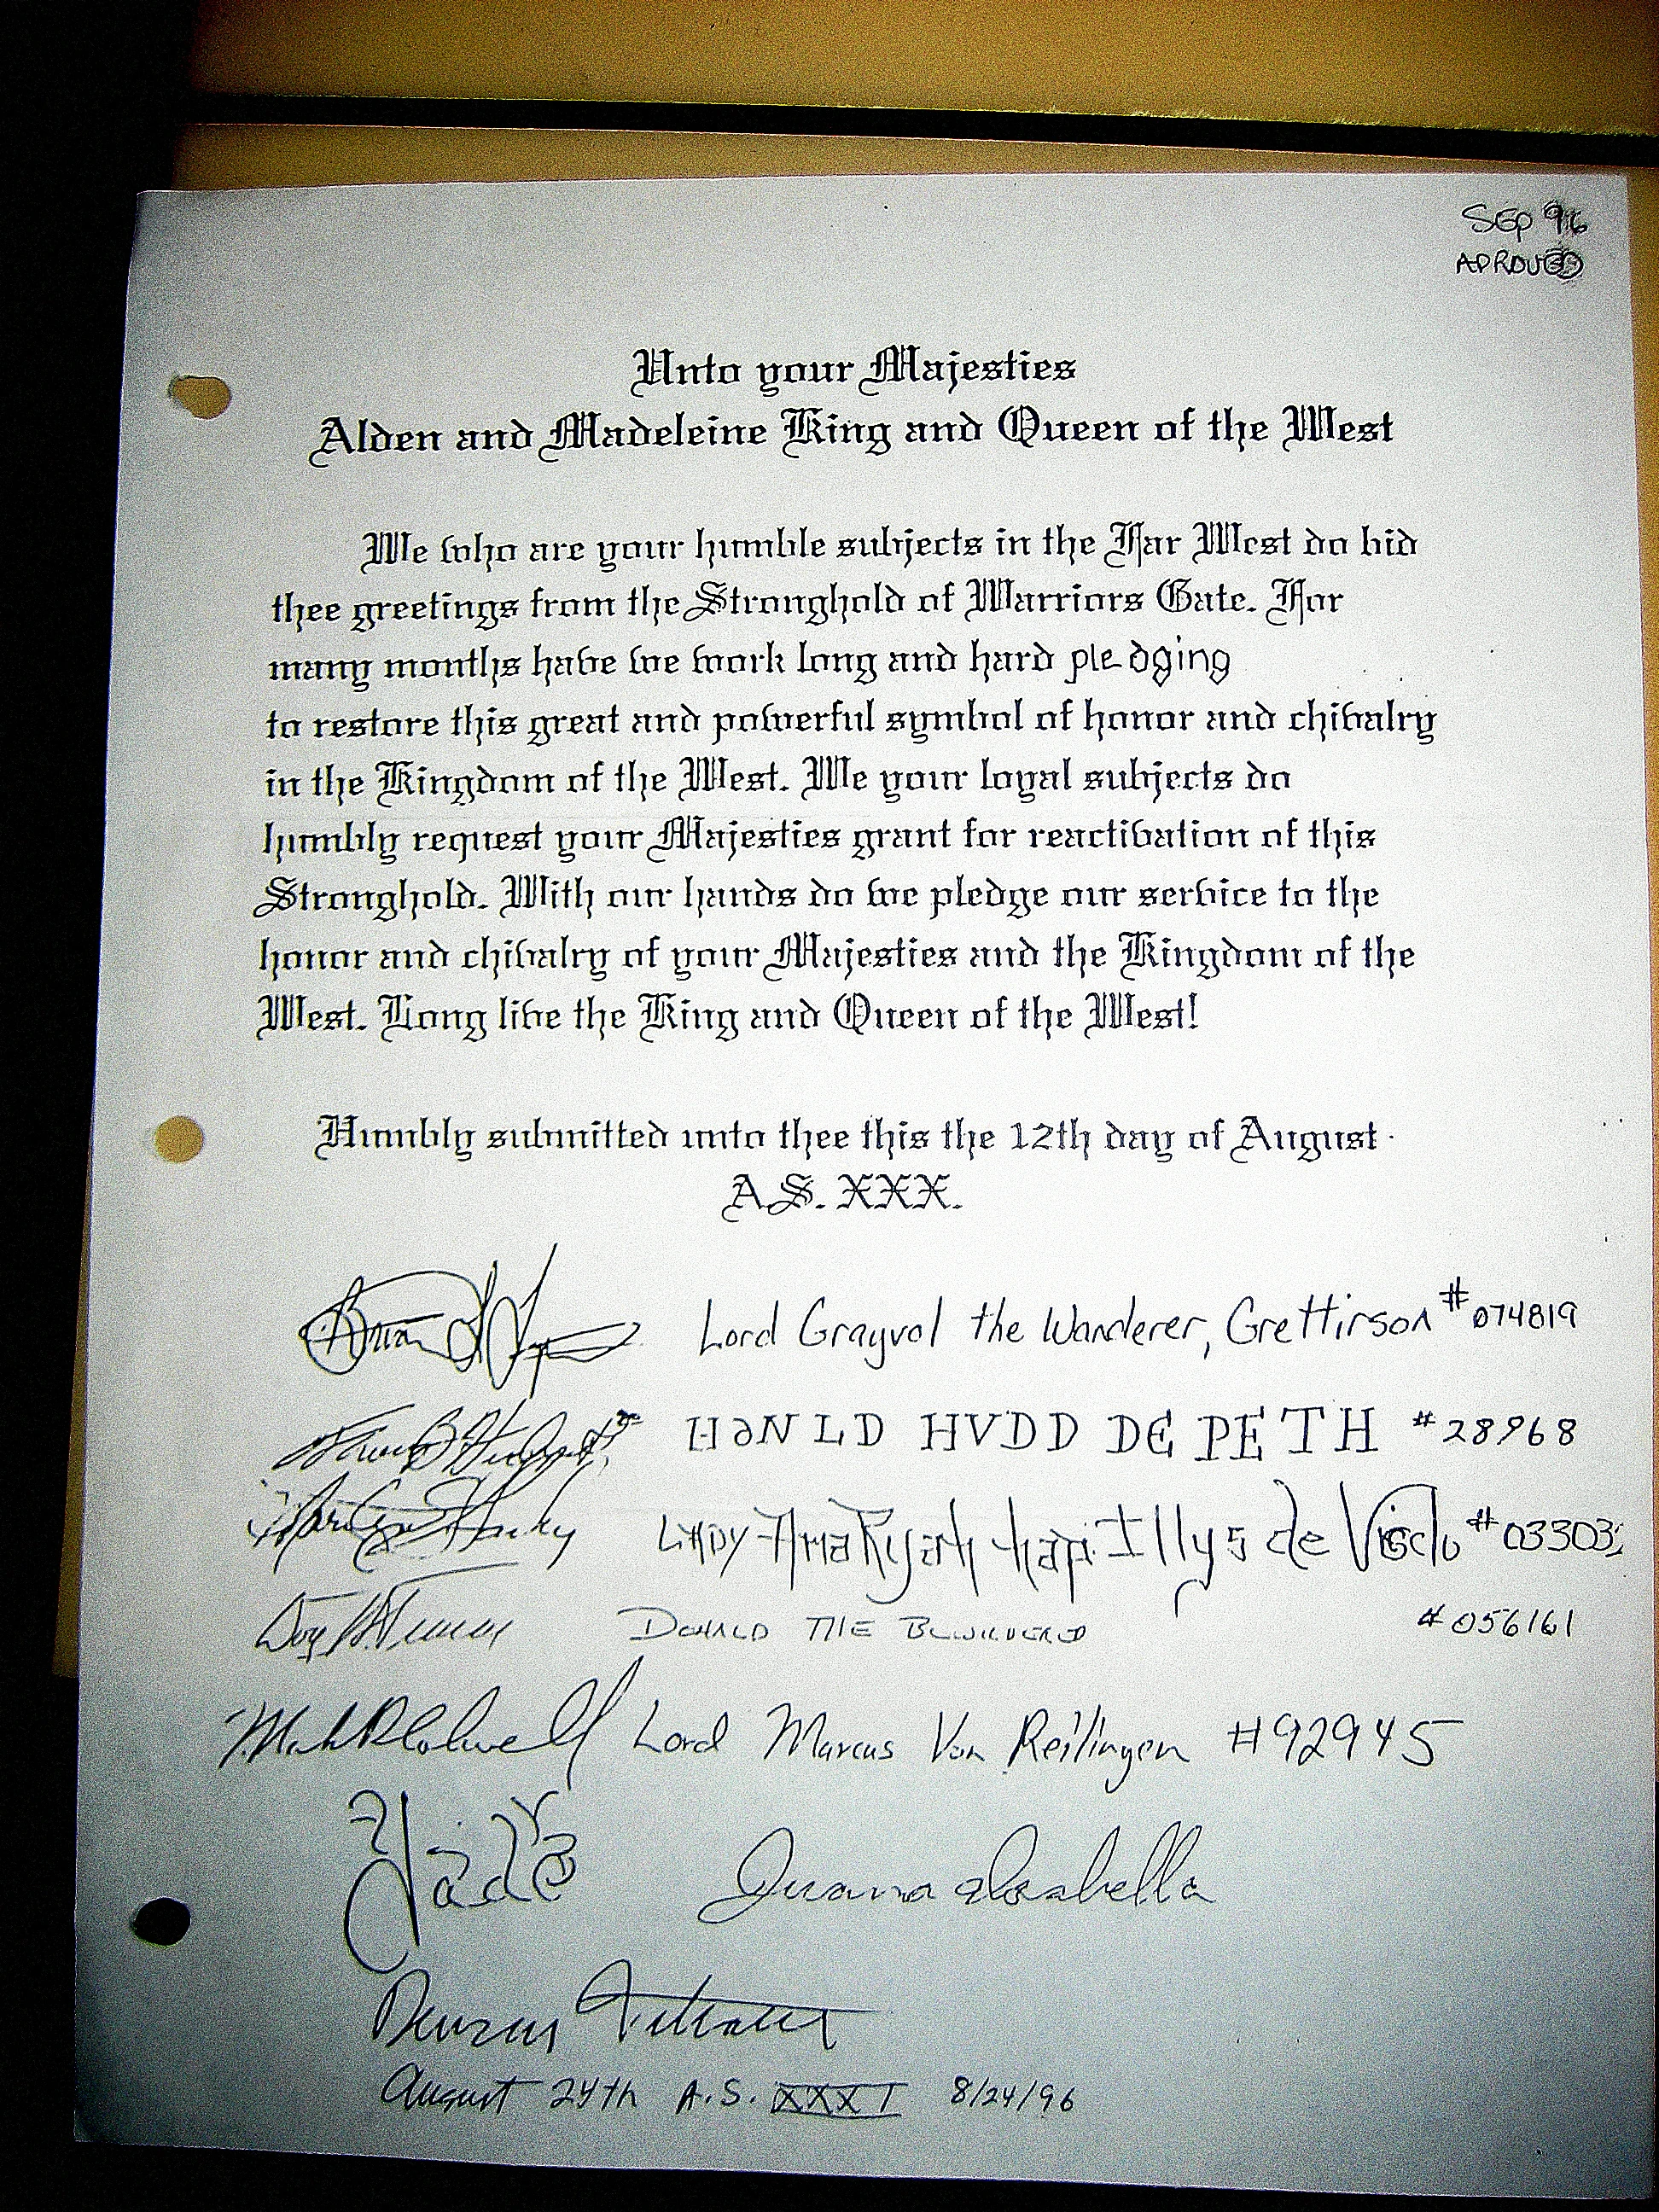 Sep 96
APROVED
Unto your Majesties
Alden and Madeleine King and Queen of the West
We who are your humble subjects in the Far West do bid
thee greetings from the Stronghold of Warriors Gate. For
many months have we work long and hard pledging
to restore this great and powerful symbol of honor and chivalry
in the Kingdom of the West. We your loyal subjects do
humbly request your Majesties grant for reactivation of this
Stronghold. With our hands do we pledge our service to the
honor and chivalry of your Majesties and the Kingdom of the
West. Long live the King and Queen of the West!
Humbly submitted unto thee this the 12th day of August
A.S. XXX.
Lord Grayvol the Wanderer, Grettirson #074819
HVDD DE PETH #28968
LADY de
DONALD THE BEWILDERED #056161
Lord Marcus Von Reilingen #92945
Jade Juana Isabella
August 24th A.S. XXXI 8/24/96